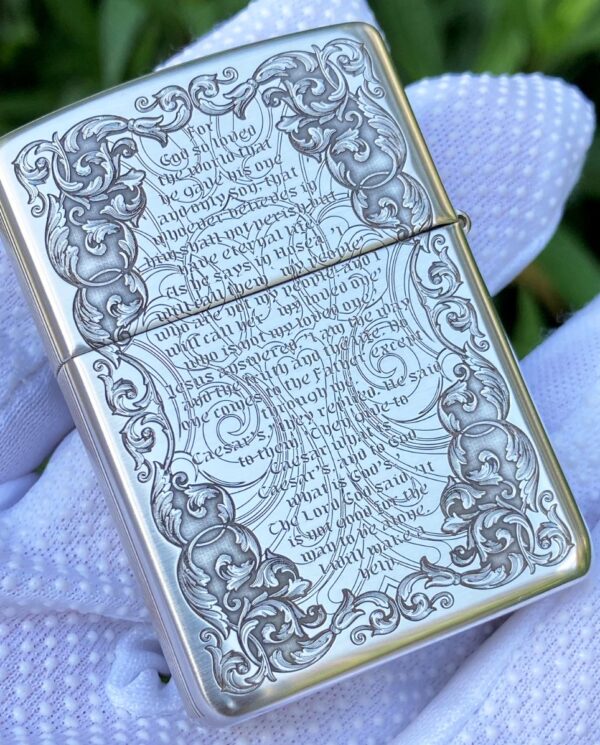 For
God so loved
the world that
he gave his one
and only Son, that
whoever believes in
him shall not perish but
have eternal life."
As he says in Hosea: "I
will call them 'my people'
who are not my people; and I
will call her 'my loved one'
who is not my loved one,"
Jesus answered, "I am the way
and the truth and the life. No
one comes to the Father except
through me.
Caesar's," they replied. He said
to them, "Then give to
Caesar what is
Caesar's, and to God
what is God's."
The Lord God said, "It
is not good for the
man to be alone.
I will make a
help